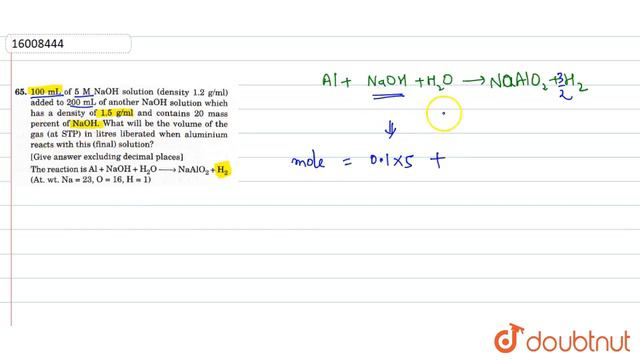 16008444
65. 100 mL of 5 M NaOH solution (density 1.2 g/ml)
added to 200 mL of another NaOH solution which
has a density of 1.5 g/ml and contains 20 mass
percent of NaOH. What will be the volume of the
gas (at STP) in litres liberated when aluminium
reacts with this (final) solution?
[Give answer excluding decimal places]
The reaction is Al + NaOH + H₂O ⟶ NaAlO₂ + H₂
(At. wt. Na = 23, O = 16, H = 1)
Al + NaOH + H₂O ⟶ NaAlO₂ + 3/2 H₂
mole = 0.1×5 +
doubtnut